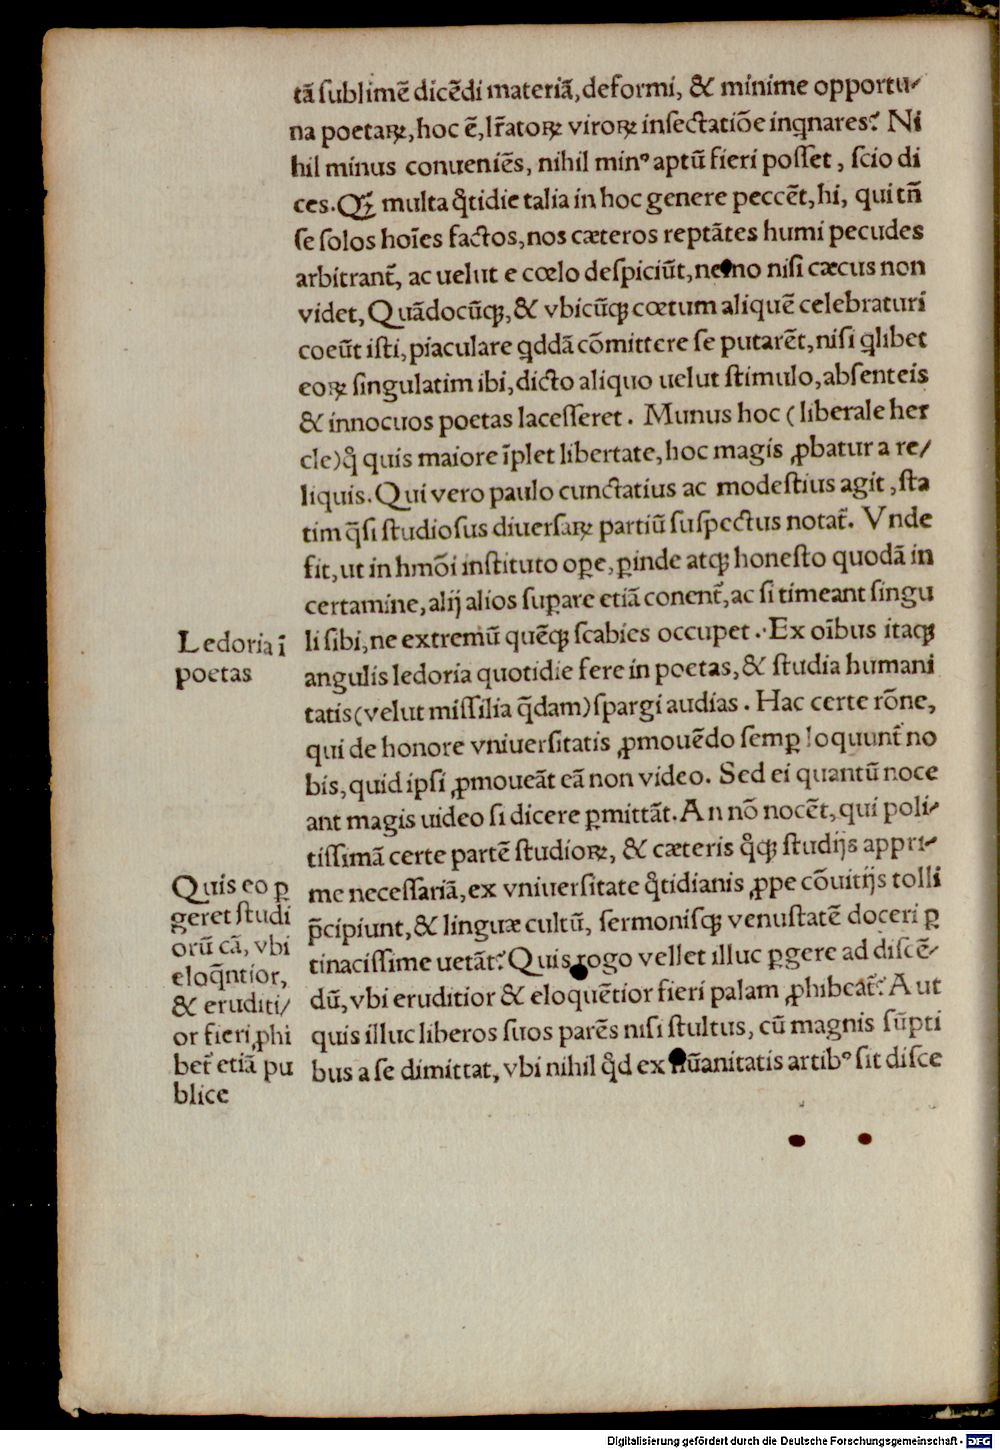 tā ſublimē dicēdi materiā, deformi, & minime opportu⸗
na poetaꝝ, hoc ē, lr̄atoꝝ viroꝝ inſectatiōe inꝗnares? Ni
hil minus conueniēs, nihil minꝰ aptū fieri poſſet, ſcio di
ces. Qꝫ multa qͥtidie talia in hoc genere peccēt, hi, qui tn̄
ſe ſolos hoīes factos, nos cæteros reptātes humi pecudes
arbitrant᷑, ac uelut e cœlo deſpiciūt, nemo niſi cæcus non
videt, Quādocūqꝫ, & vbicūqꝫ cœtum aliquē celebraturi
coeūt iſti, piaculare ꝗddā cōmittere ſe putarēt, niſi ꝗlibet
eoꝝ ſingulatim ibi, dicto aliquo uelut ſtimulo, abſenteis
& innocuos poetas laceſſeret. Munus hoc (liberale her
cle) qͦ quis maiore īplet libertate, hoc magis ꝓbatur a re/
liquis. Qui vero paulo cunctatius ac modeſtius agit, ſta
tim q̄ſi ſtudioſus diuerſaꝝ partiū ſuſpectus notat᷑. Vnde
fit, ut in hmōi inſtituto oꝑe, ꝑinde atqꝫ honeſto quodā in
certamine, alij alios ſuꝑare etiā conent᷑, ac ſi timeant ſingu
li ſibi, ne extremū quēqꝫ ſcabies occupet. Ex oībus itaqꝫ
angulis ledoria quotidie fere in poetas, & ſtudia humani
tatis (velut miſſilia q̄dam) ſpargi audias. Hac certe rōne,
qui de honore vniuerſitatis ꝓmouēdo ſemꝑ loquunt᷑ no
bis, quid ipſi ꝓmoueāt eā non video. Sed ei quantū noce
ant magis uideo ſi dicere ꝑmittāt. An nō nocēt, qui poli⸗
tiſſimā certe partē ſtudioꝝ, & cæteris qͥqꝫ ſtudijs appri⸗
me neceſſariā, ex vniuerſitate qͥtidianis ꝓpe cōuitijs tolli
p̄cipiunt, & linguæ cultū, ſermoniſqꝫ venuſtatē doceri ꝑ
tinaciſſime uetāt? Quis rogo vellet illuc ꝑgere ad diſcē⸗
dū, vbi eruditior & eloquētior fieri palam ꝓhibeat᷑? Aut
quis illuc liberos ſuos parēs niſi ſtultus, cū magnis ſūpti
bus a ſe dimittat, vbi nihil qͥd ex hūanitatis artibꝰ ſit diſce
Ledoria ī
poetas
Quis eo ꝑ
geret ſtudi
orū cā, vbi
eloq̄ntior,
& eruditi/
or fieri ꝓhi
bet᷑ etiā pu
blice
Digitalisierung gefördert durch die Deutsche Forschungsgemeinschaft - DFG